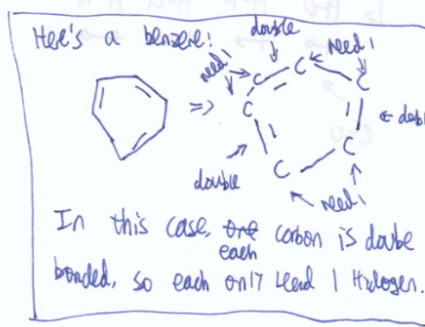 Here's a benzene!
double
need 1
need 1
C C
C C
=>
C C
double
double
need 1
In this case, one carbon is double
each
bonded, so each only need 1 Hydrogen.